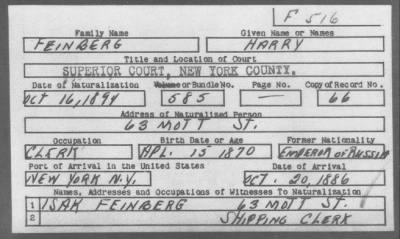 F 516
Family Name Given Name or Names
FEINBERG HARRY
Title and Location of Court
SUPERIOR COURT, NEW YORK COUNTY.
Date of Naturalization Volume or Bundle No. Page No. Copy of Record No.
OCT 16, 1894 585 — 66
Address of Naturalized Person
63 MOTT ST.
Occupation Birth Date or Age Former Nationality
CLERK APL. 15 1870 EMPEROR OF RUSSIA
Port of Arrival in the United States Date of Arrival
NEW YORK N.Y. OCT. 20, 1886
Names, Addresses and Occupations of Witnesses To Naturalization
1 ISAK FEINBERG 63 MOTT ST.
2 SHIPPING CLERK